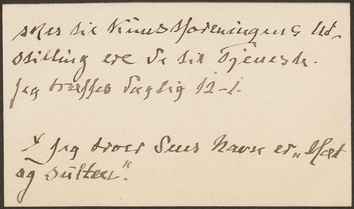 sker die Kunstforeningens Ud-
stilling ere de til Tjeneste.
Jeg træffes daglig 12-1.
Jeg troer Dens Navn er „Mæt
og Sulten".